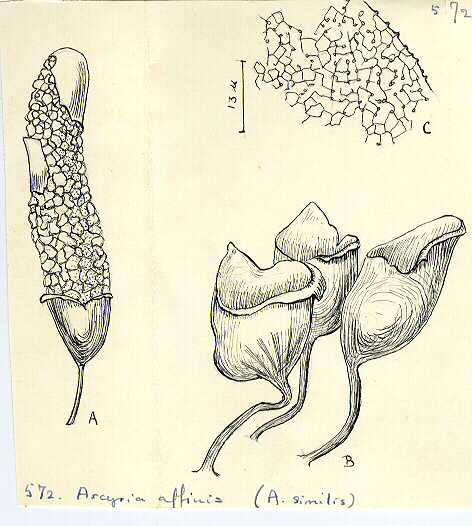 572
13 µ
C
A
B
572. Arcyria affinis (A. similis)